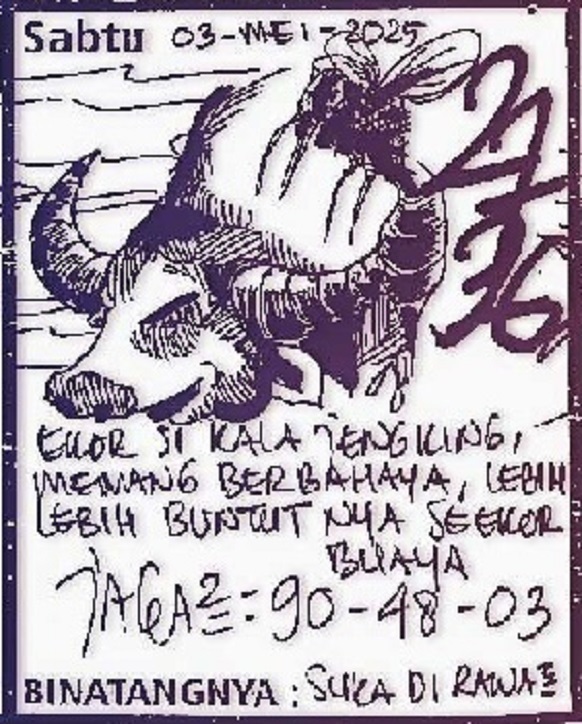 Sabtu 03-MEI-2025
27
36
EKOR SI KALA JENGKING,
MEMANG BERBAHAYA, LEBIH
LEBIH BUNTUT NYA SEEKOR
BUAYA
JAGA2 = 90-48-03
BINATANGNYA : SUKA DI RAWA2